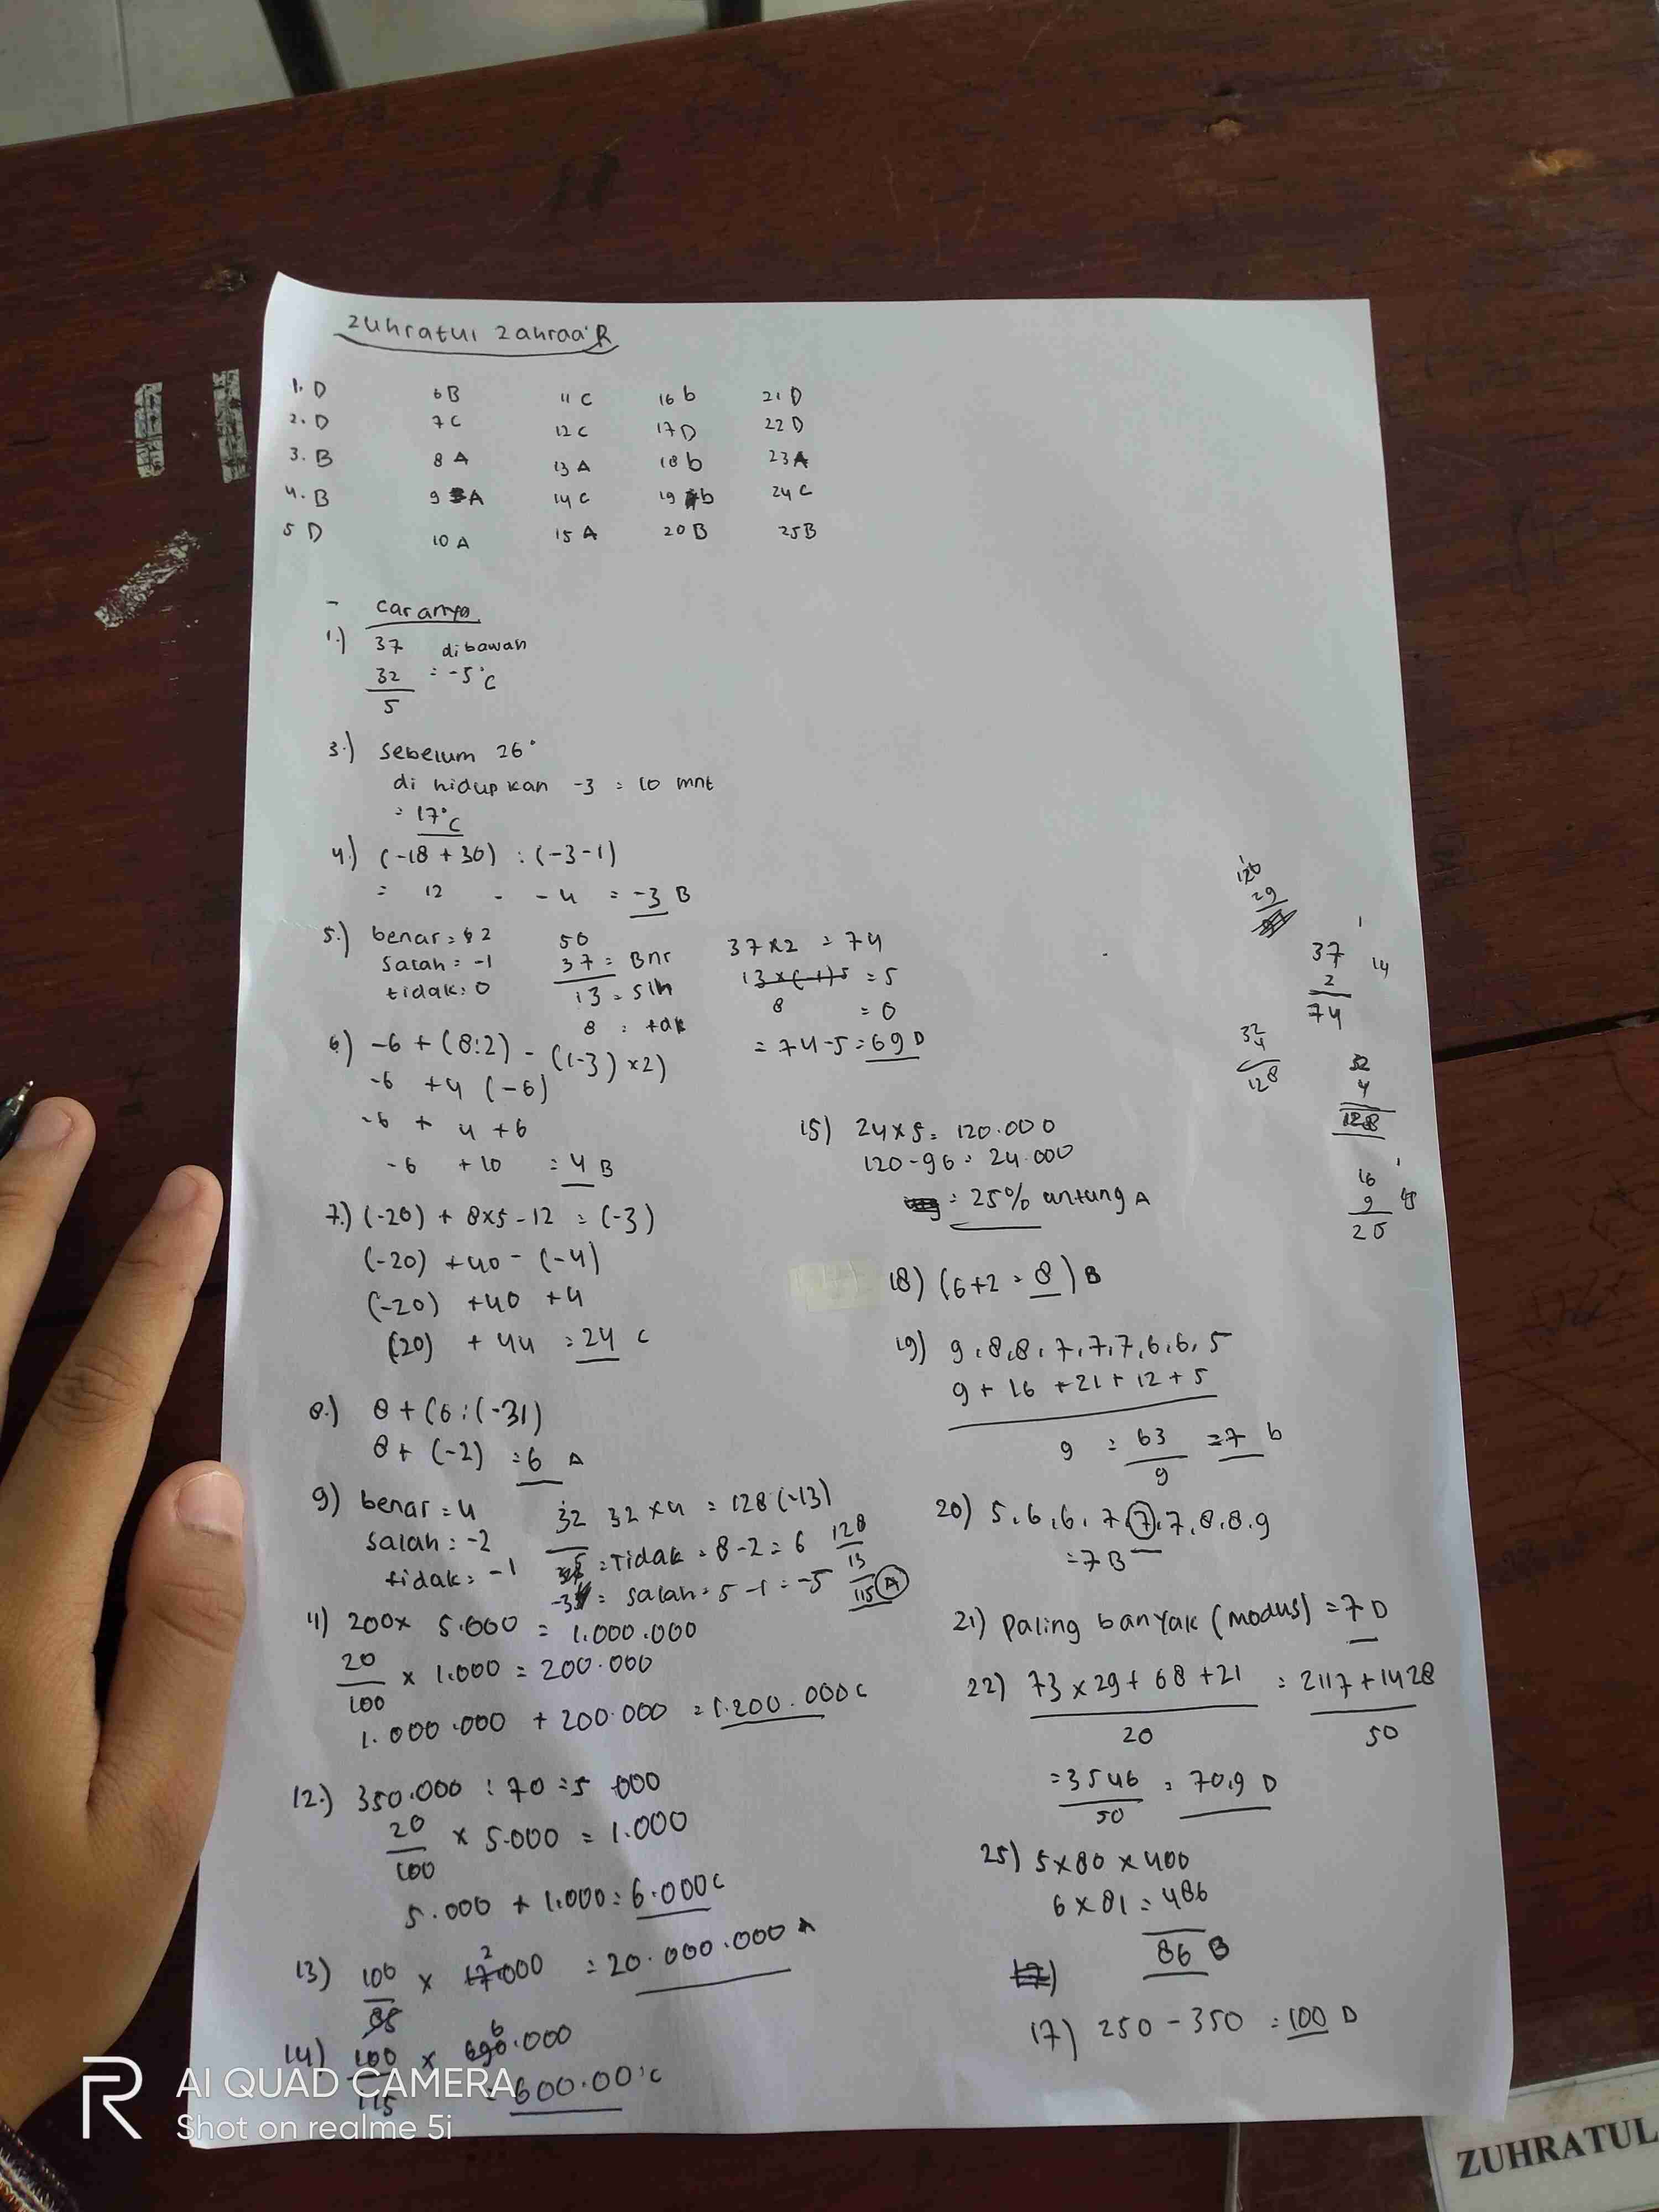 Zuhratul Zahraa'R
1. D
2. D
3. B
4. B
5 D
6 B
7 C
8 A
9 A
10 A
11 C
12 C
13 A
14 C
15 A
16 b
17 D
18 b
19 b
20 B
21 D
22 D
23 A
24 C
25 B
- Caranya
1.) 37 dibawah
32 = -5°C
5
3.) Sebelum 26°
di hidupkan -3 = 10 mnt
= 17°C
4.) (-18 + 30) : (-3-1)
= 12 - -4 = -3 B
5.) benar = 2
Salah = -1
tidak = 0
50
37 = Bnr
13 = Slh
8 = tdk
37x2 = 74
13x(-1)5 = 5
8 = 0
= 74-5 = 69 D
6) -6 + (8:2) - ((-3)x2)
-6 + 4 (-6)
-6 + 4 + 6
-6 + 10 = 4 B
7.) (-20) + 8x5 - 12 : (-3)
(-20) + 40 - (-4)
(-20) + 40 + 4
(20) + 44 = 24 C
8.) 8 + (6 : (-3))
8 + (-2) = 6 A
9) benar = 4
Salah = -2
tidak = -1
32 32 x 4 = 128 (-13)
= Tidak = 8-2 = 6
= Salah = 5 -1 = -5
128
13
115 A
11) 200 x 5.000 = 1.000.000
20
100 x 1.000 = 200.000
1.000.000 + 200.000 = 1.200.000 C
12.) 350.000 : 70 = 5 000
20
100 x 5.000 = 1.000
5.000 + 1.000 = 6.000 C
13) 100 x 17.000 = 20.000.000 A
2
85
14) 100 x 690.000
6
115 = 600.00 C
126
29
37
2
74
14
32
4
128
32
4
128
16
9
25
15) 24x5 = 120.000
120-96 = 24.000
= 25% untung A
18) (6+2 = 8) B
19) 9,8,8,7,7,7,6,6,5
9 + 16 + 21 + 12 + 5
9 = 63 = 7 b
9
20) 5,6,6,7,7,7,8,8,9
= 7 B
21) Paling banyak (modus) = 7 D
22) 73 x 29 + 68 + 21 = 2117 + 1428
20 50
= 3546 = 70,9 D
50
25) 5x80 x 400
6 x 81 = 486
86 B
17) 250 - 350 = 100 D
R AI QUAD CAMERA
Shot on realme 5i
ZUHRATUL